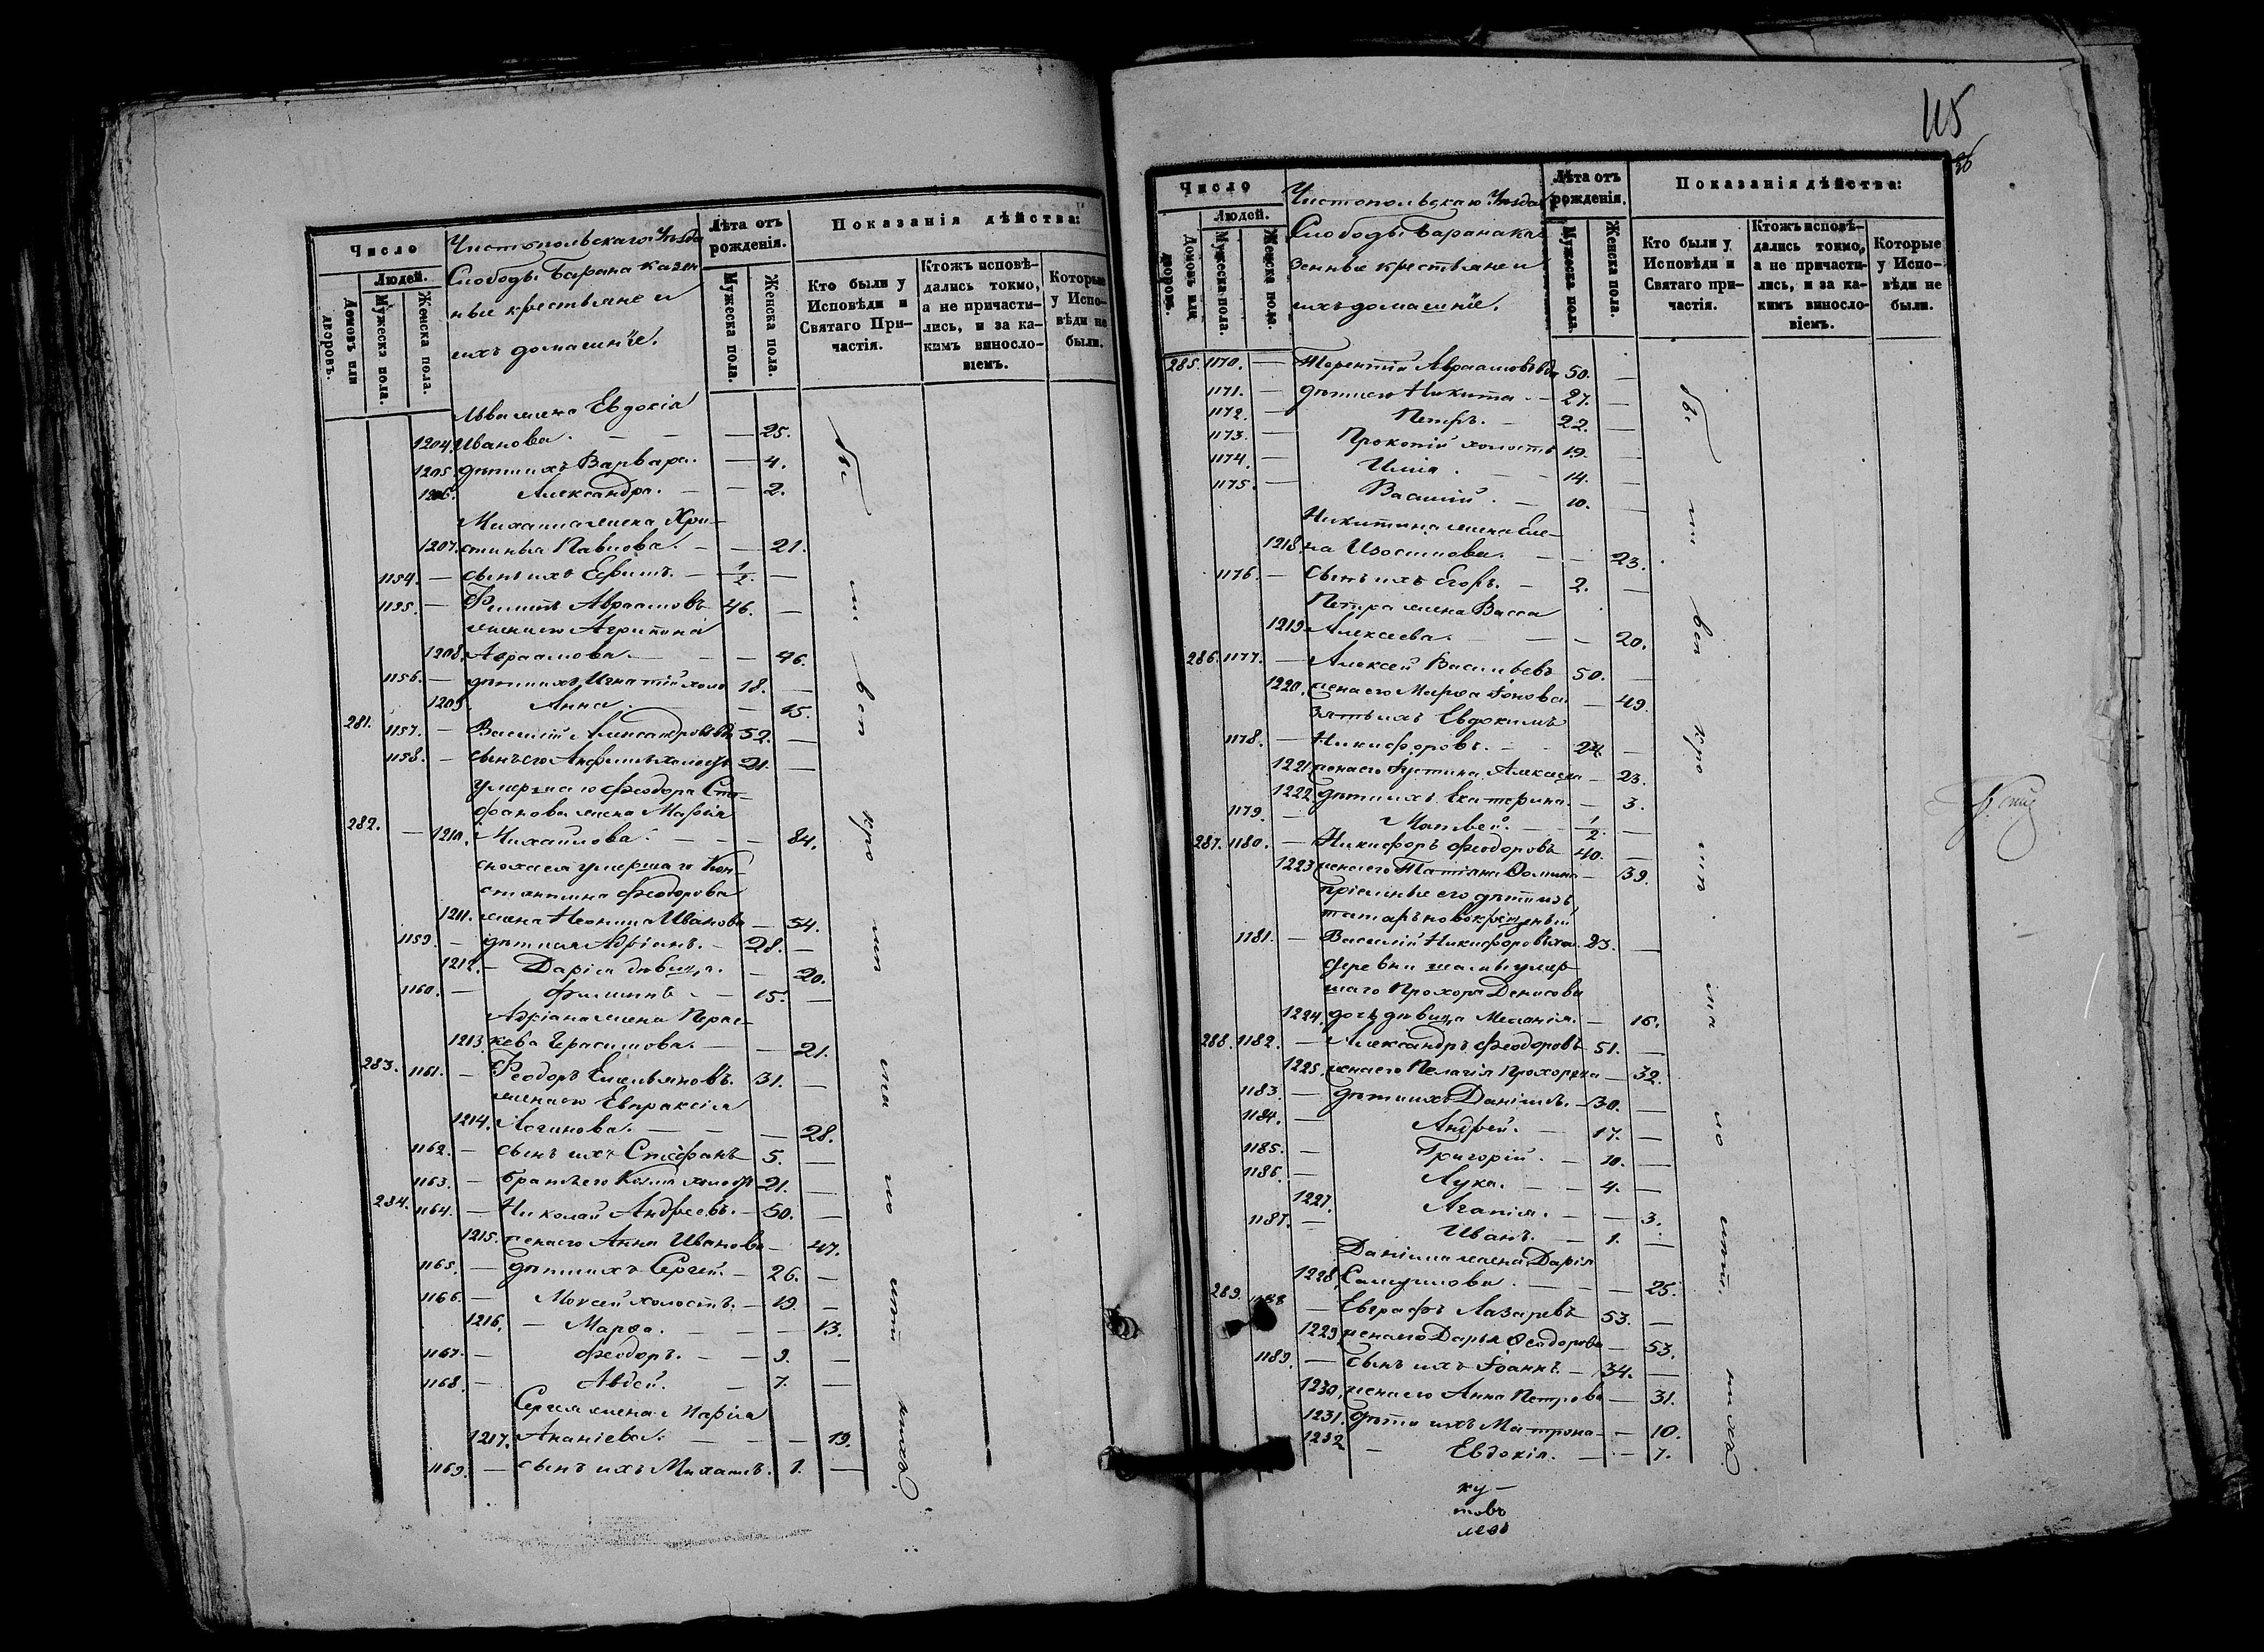 Число
Людей.
Домовъ или дворовъ.
Мужеска пола.
Женска пола.
Чистопольскаго Уѣзда
Слободы Барана казен
ные крестьяне и
ихъ домашніе.
Лѣта отъ рожденія.
Мужеска пола.
Женска пола.
Показанія дѣйства:
Кто были у Исповѣди и Святаго Причастія.
Ктожъ исповѣдались токмо, а не причастились, и за какимъ винословіемъ.
Которые у Исповѣди не были.
жена Евдокія
1204. Иванова. — — — 25.
1205. дѣти ихъ Варвара. — 4.
1206. Александра. — — 2.
Михаила жена Хри-
1207. стинья Павлова. — — 21.
1154. — сынъ ихъ Ефимъ. — 1/2. —
1155. — Филипъ Авраамовъ 46. —
жена его Агрипина
1208. Авраамова. — — — 46.
1156. — дѣти ихъ Игнатій холо 18. —
1209. Анна. — — 15.
281. 1157. — Василій Александровъ вд 52. —
1158. — сынъ его Анфимъ холостъ 21. —
умершаго Феодора Сте-
фанова жена Марія
282. — 1210. Михайлова. — — — 84.
сноха ея умершаго Кон-
стантина Феодорова
1211. жена Неонила Иванова — 54.
1159. — дѣти ея Адріанъ. — 28. —
1212. — Дарія дѣвица. — 20.
1160. — Филиппъ — — 15. —
Адріана жена Парас-
1213. кева Герасимова. — — 21.
283. 1161. — Феодоръ Емельяновъ. 31. —
жена его Евпраксія
1214. Логинова. — — — 28.
1162. — сынъ ихъ Стефанъ 5. —
1163. — братъ его Козма холостъ 21. —
284. 1164. — Николай Андреевъ. — 50. —
1215. жена его Анна Иванова — 47.
1165. — дѣти ихъ Сергей. — 26. —
1166. — Моисей холостъ. — 19. —
1216. — Марѳа. — — — 13.
1167. — Феодоръ. — — 9. —
1168. — Авдей. — 7. —
Сергея жена Марія
1217. Ананіева. — — — 19.
1169. — сынъ ихъ Михаилъ. 1. —
115
Число
Людей.
Домовъ или дворовъ.
Мужеска пола.
Женска пола.
Чистопольскаго Уѣзда
Слободы Барана ка
зенные крестьяне и
ихъ домашніе.
Лѣта отъ рожденія.
Мужеска пола.
Женска пола.
Показанія дѣйства:
Кто были у Исповѣди и Святаго причастія.
Ктожъ исповѣдались токмо, а не причастились, и за какимъ винословіемъ.
Которые у Исповѣди не были.
285. 1170. — Терентій Авраамовъ вд 50. —
1171. — дѣти его Никита. — 27. —
1172. — Петръ. — 22. —
1173. — Прокопій холостъ 19. —
1174. — Илія. — — 14. —
1175. — Василій. — 10. —
Никитина жена Еле-
1218. на Изосимова. — — 23.
1176. — сынъ ихъ Егоръ. — 2. —
Петра жена Васса
1219. Алексеева. — — — 20.
286. 1177. — Алексей Васильевъ 50. —
1220. жена его Марѳа Іонова — 49.
зять ихъ Евдокимъ
1178. — Никифоровъ. — — 24. —
1221. жена его Устина Алексеева — 23.
1222. дѣти ихъ Екатерина. — 3.
1179. — Матвей. — 1/2. —
287. 1180. — Никифоръ Феодоровъ 40. —
1223. жена его Татіана — 39.
пріемные его дѣти изъ
татаръ новокрещеный
1181. — Василій Никифоровъ 23. —
деревни умер
шаго Прохора Денисова
1224. дочь дѣвица Меланія. — 16.
288. 1182. — Александръ Феодоровъ 51. —
1225. жена его Пелагія Прохорова — 32.
1183. — дѣти ихъ Даніилъ. — 30. —
1184. — Андрей. — 17. —
1185. — Григорій. — 10. —
1186. — Лука. — — 4. —
1227. Агапія. — — 3.
1187. — Иванъ. — 1. —
Даніила жена Дарія
1228. Самуилова. — — — 25.
289. 1188 — Евграфъ Лазаревъ 53. —
1229. жена его Дарья Ѳеодорова — 53.
1189. — сынъ ихъ Іоаннъ. — 34. —
1230. жена его Анна Петрова — 31.
1231. дѣти ихъ Матрона — — 10.
1232 — Евдокія. — — 7.